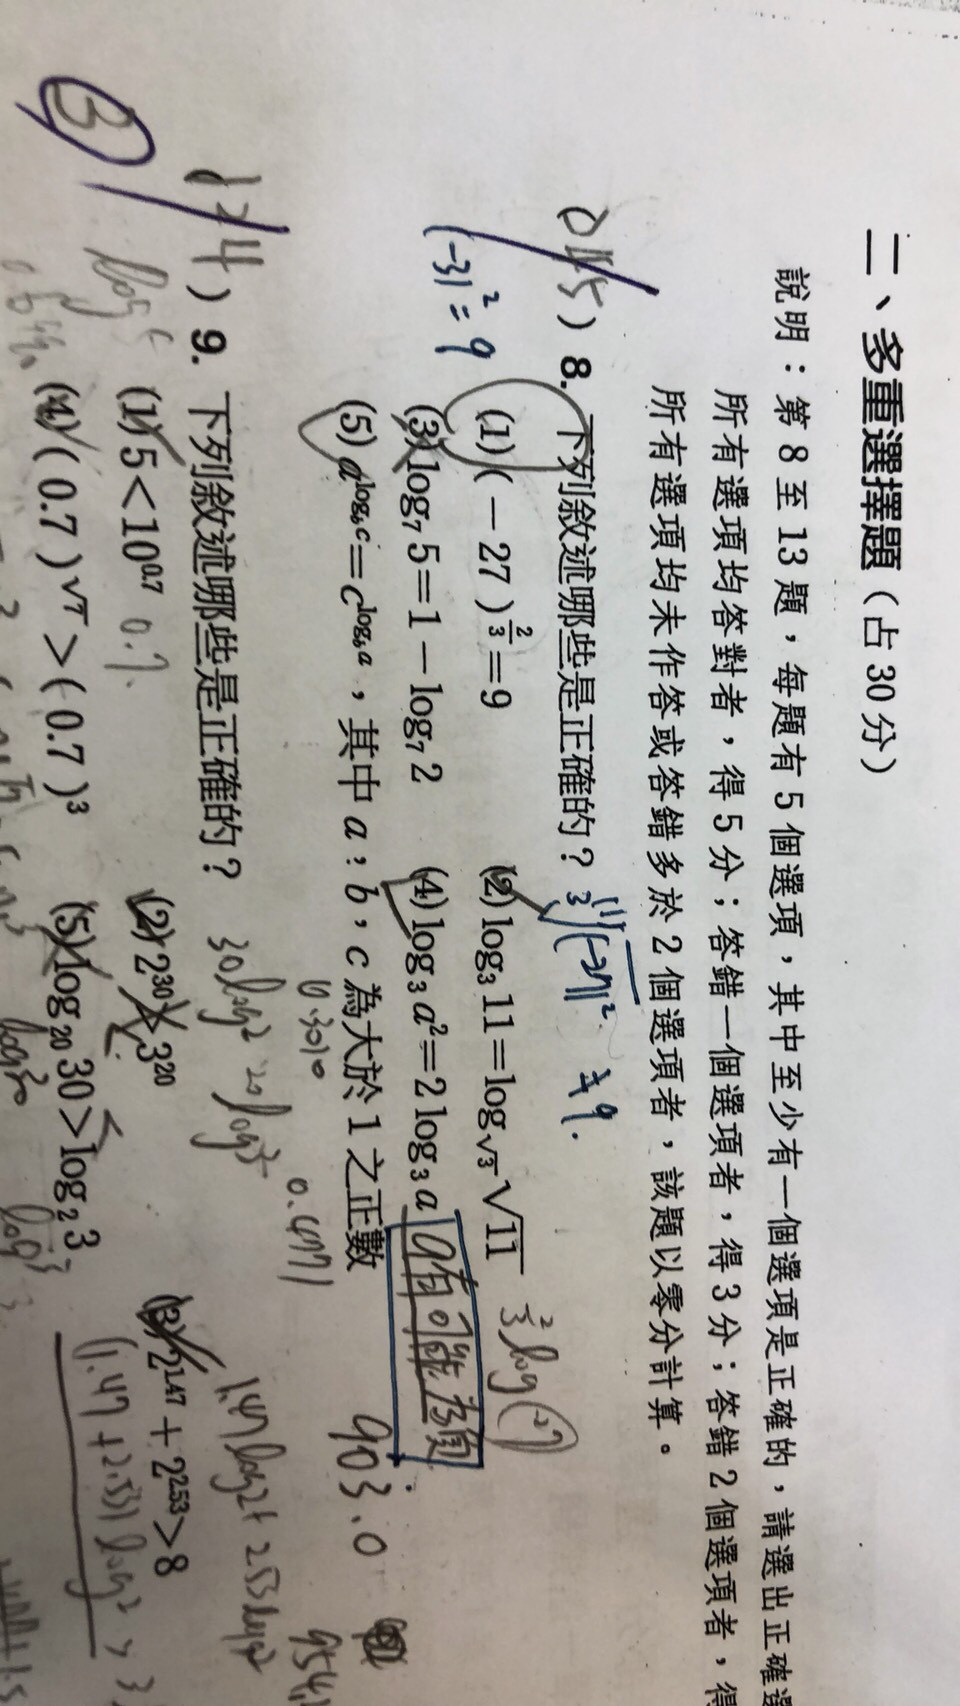 二、多重選擇題（占 30 分）
說明：第 8 至 13 題，每題有 5 個選項，其中至少有一個選項是正確的，請選出正確選
所有選項均答對者，得 5 分；答錯一個選項者，得 3 分；答錯 2 個選項者，得
所有選項均未作答或答錯多於 2 個選項者，該題以零分計算。
) 8. 下列敘述哪些是正確的？ ∛(-27)² ≠9.
(1) (－27)^{2/3}＝9 (2) log₃ 11＝log_{√3} √11
(-3)²=9
(3) log₇ 5＝1－log₇ 2 (4) log₃ a²＝2 log₃ a a有可能為負
(5) a^{log_b c}＝c^{log_b a}，其中 a，b，c 為大於 1 之正數
0.3010 0.4771 903.0
124 ) 9. 下列敘述哪些是正確的？ 30log2 20log3 1.47log2+2.53log2
(1) 5＜10^{0.7} 0.7 (2) 2³⁰＞3²⁰ (3) 2^{1.47}＋2^{2.53}＞8
(4) (0.7)^{√7}＞(0.7)³ (5) log₂₀ 30＞log₂ 3 (1.47+2.53)log2 > 3
3